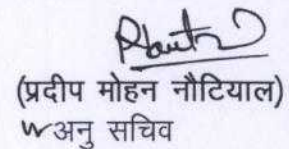 (प्रदीप मोहन नौटियाल)
अनु सचिव